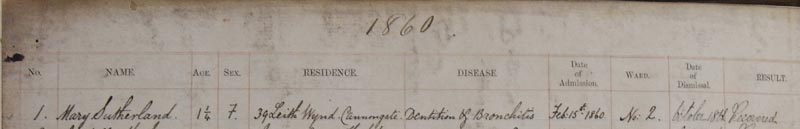 1860.
No. NAME. AGE. SEX. RESIDENCE. DISEASE. Date of Admission. WARD. Date of Dismissal. RESULT.
1. Mary Sutherland. 1¼ F. 39 Leith Wynd Cannongate. Dentition & Bronchitis Feb: 15th 1860. No: 2. 18th Recovered